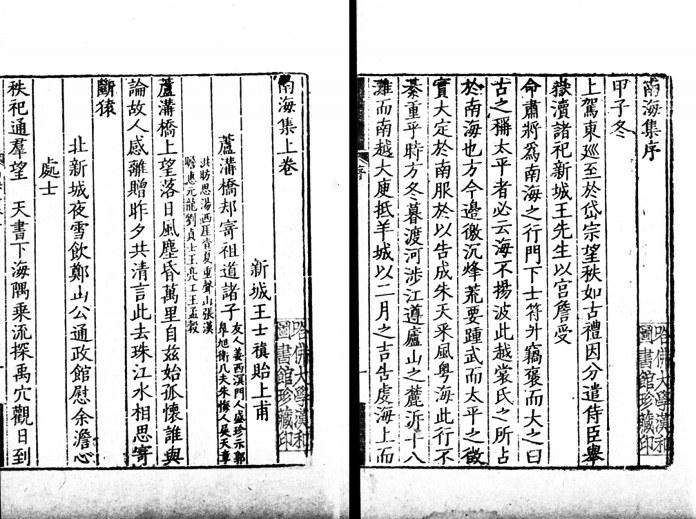 南海集序
甲子冬
上駕東巡至於岱宗望秩如古禮因分遣侍臣舉
嶽瀆諸祀新城王先生以宮詹受
命肅將為南海之行門下士符升竊褒而大之曰
古之稱太平者必云海不揚波此越裳氏之所占
於南海也方今邊徼沉烽荒要踵武而太平之徵
實大定於南服於以告成朱天采風粵海此行不
綦重乎時方冬暮渡河涉江遵廬山之麓泝十八
灘而南越大庾抵羊城以二月之吉告虔海上而
哈佛大學漢和
圖書館珍藏印
南海集上卷
新城王士禛貽上甫
蘆溝橋却寄祖道諸子友人姜西溟門人盛珍示郭
皋旭衛凡夫朱悔人吳天章
北昉思湯西厓查夏重聲山張漢
瞻惠元龍劉貞士王亮工王孟穀
蘆溝橋上望落日風塵昏萬里自茲始孤懷誰與
論故人感離贈昨夕共清言此去珠江水相思寄
斷猿
北新城夜雪飲鄭山公通政館慰余澹心
處士
秩祀通羣望 天書下海隅乘流探禹穴觀日到
哈佛大學漢和
圖書館珍藏印